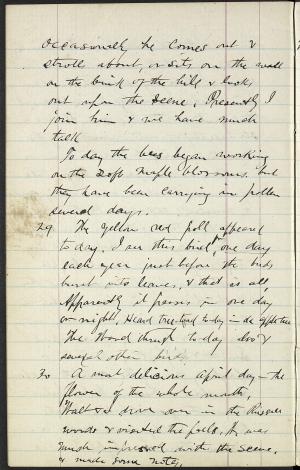 Occasionally he comes out &
stroll about, or sits on the wall
on the brink of the hill & looks
out upon the scene. Presently I
join him & we have much
talk
To day the bees began working
on the soft maple blossoms. but
they have been carrying in pollen
several days.
29 The yellow red poll appeared
to day. I see this bird, one day
each year just before the buds
burst into leaves, & that is all.
Apparently it passes in one day
or night. Heard tree toad to day in the apple tree
The Wood thrush to day also &
several other birds
30 A most delicious april day – the
flower of the whole month,
Walt & I drove over in the Russell
woods & visited the falls. He was
much impressed with the scene.
& made some notes,